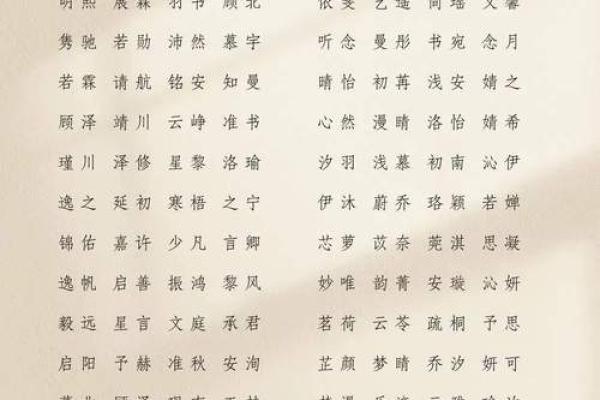 明熙 展霖 羽书 顾北 依雯 艺遥 简瑶 文馨
隽驰 若勋 沛然 慕宇 听念 曼彤 书宛 念月
若霖 请航 铭安 知曼 晴怡 初苒 浅安 婧之
顾泽 靖川 云峥 准书 心然 漫晴 洛怡 婧希
瑾川 泽修 星黎 洛瑜 汐羽 浅慕 初南 沁伊
逸之 延初 寒梧 之宁 伊沐 蔚乔 珞颖 若婵
锦佑 嘉许 少凡 言卿 芯萝 苡奈 莞淇 思凝
逸帆 启善 振鸿 黎风 妙唯 韵菁 安璇 沁妍
毅远 星言 文庭 承君 茗荷 云苓 疏桐 予思
启阳 予赫 准秋 安洵 芷颜 梦晴 乔汐 妍可